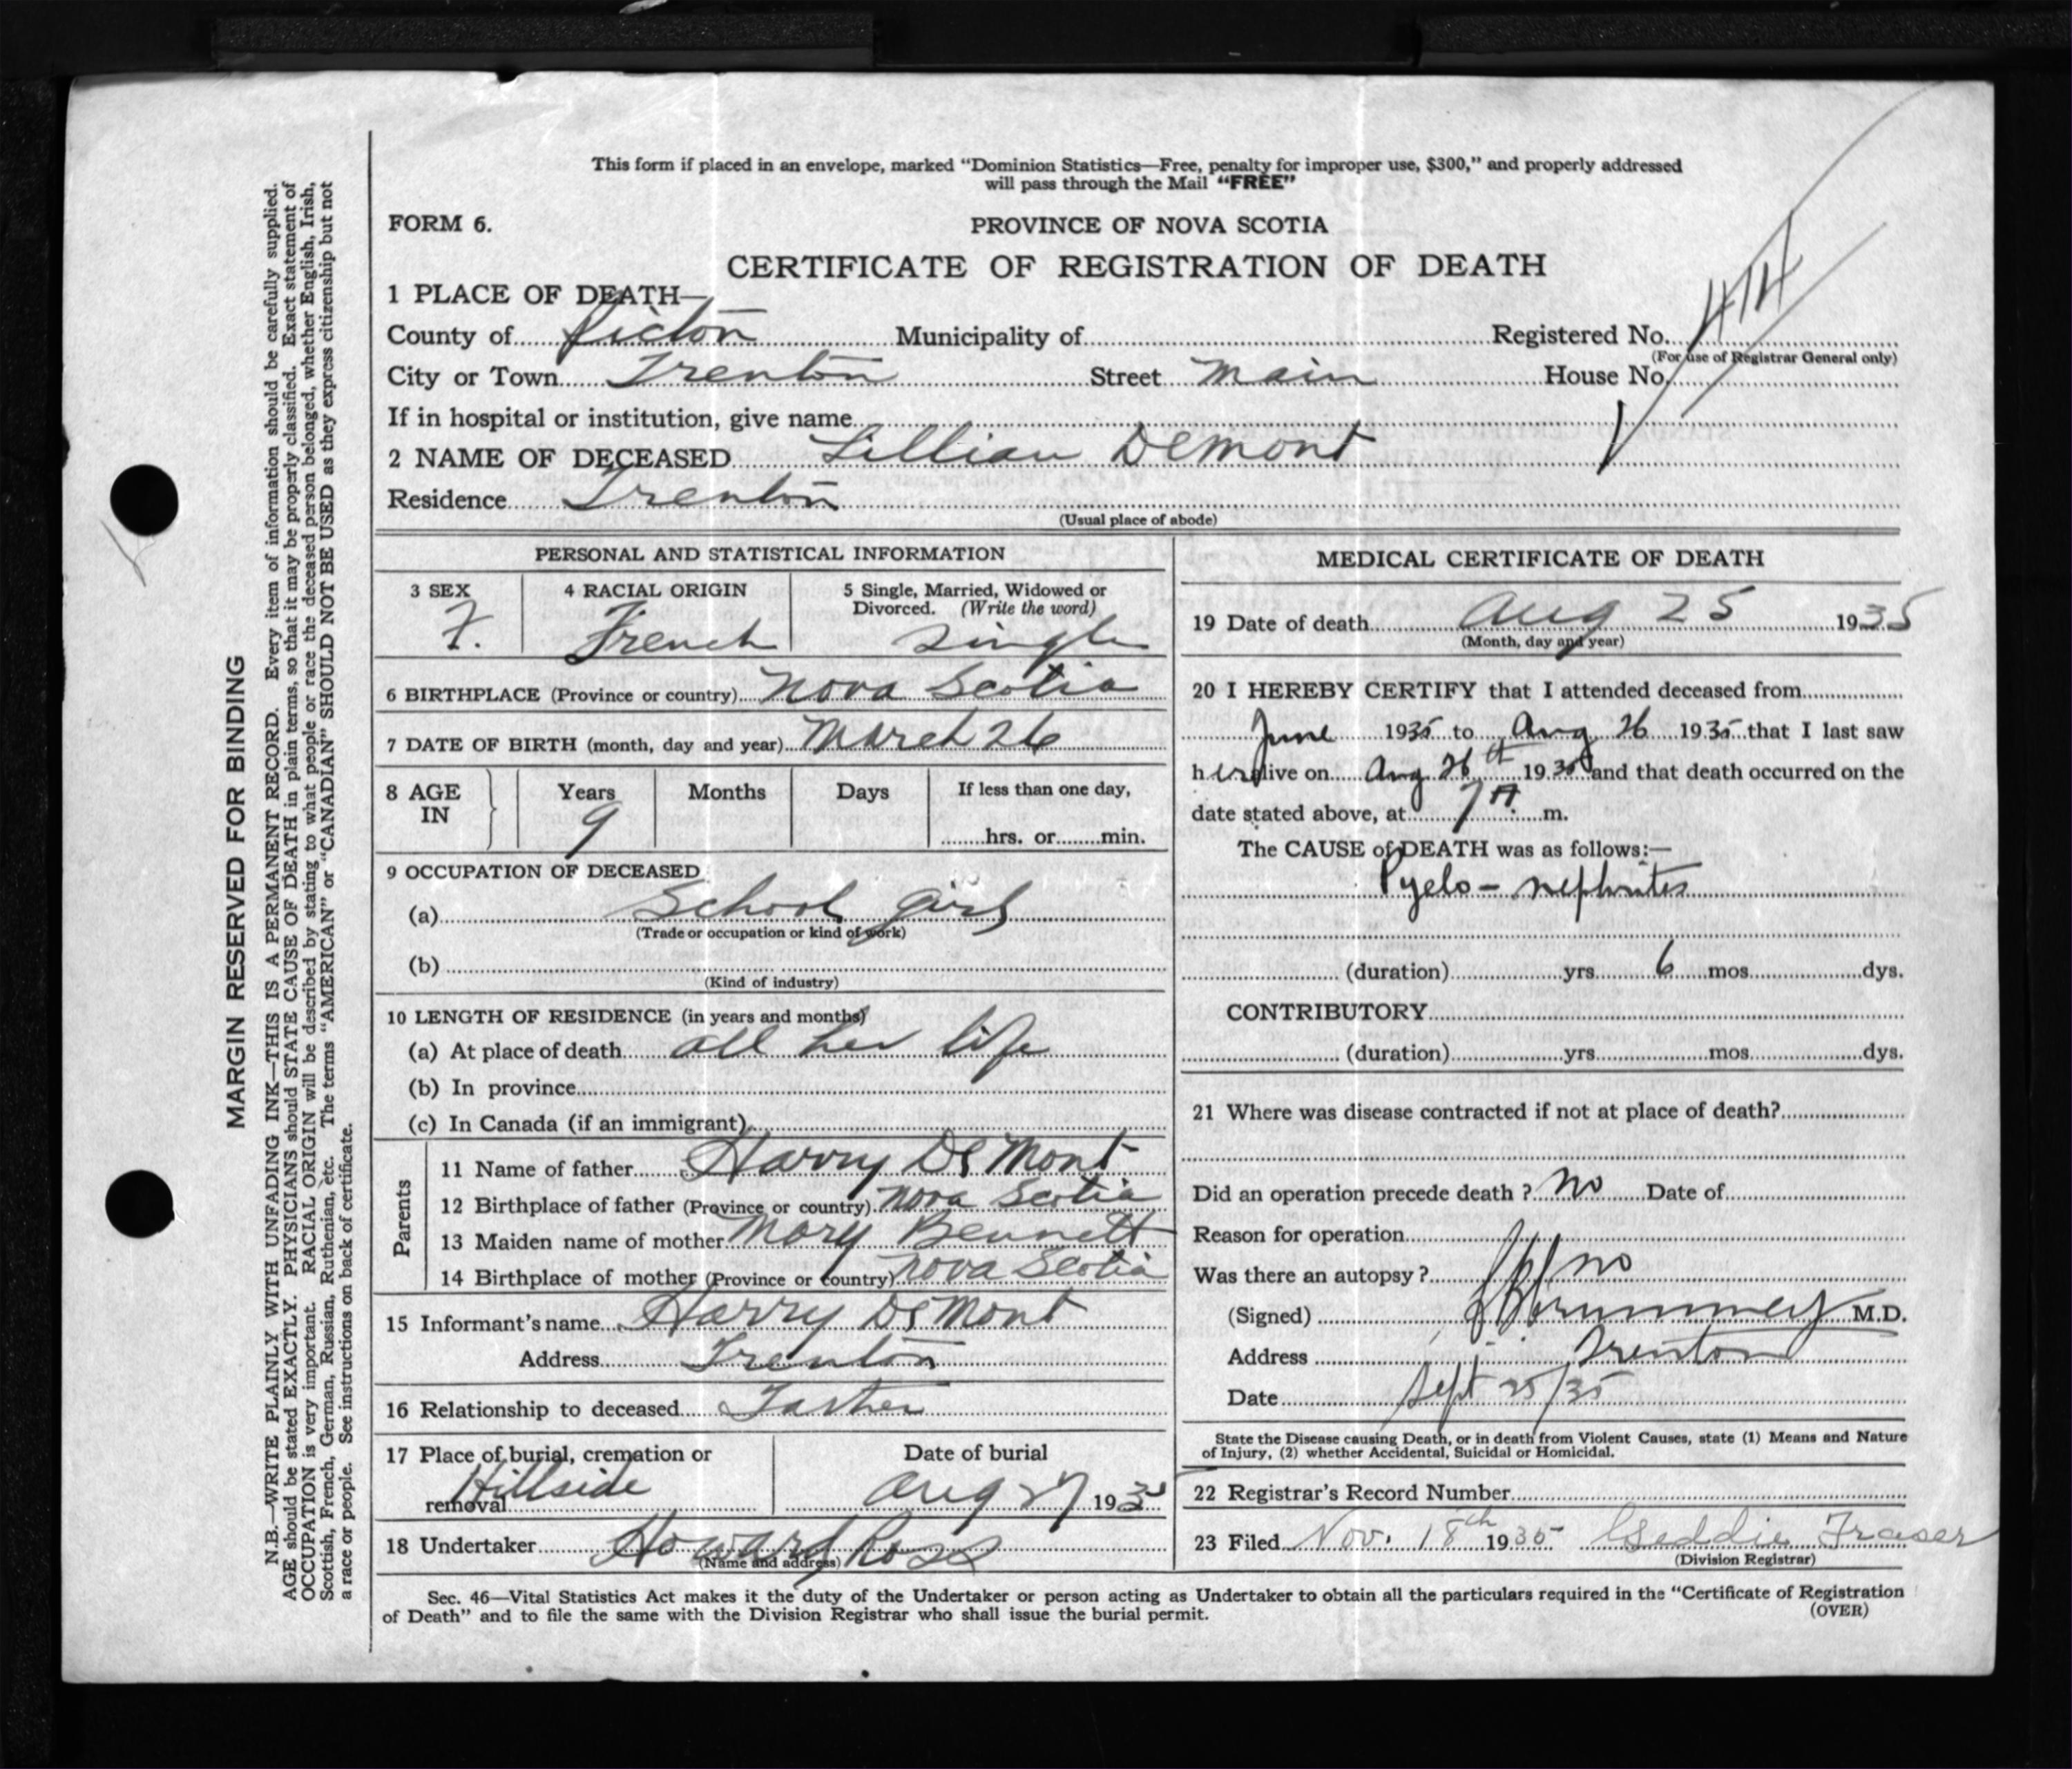 This form if placed in an envelope, marked "Dominion Statistics—Free, penalty for improper use, $300," and properly addressed
will pass through the Mail "FREE"
FORM 6.
PROVINCE OF NOVA SCOTIA
CERTIFICATE OF REGISTRATION OF DEATH
1 PLACE OF DEATH—
County of Pictou Municipality of Registered No. 414
(For use of Registrar General only)
City or Town Trenton Street Main House No.
If in hospital or institution, give name
2 NAME OF DECEASED Lillian DeMont
Residence Trenton
(Usual place of abode)
PERSONAL AND STATISTICAL INFORMATION
3 SEX 4 RACIAL ORIGIN 5 Single, Married, Widowed or
Divorced. (Write the word)
F. French Single
6 BIRTHPLACE (Province or country) Nova Scotia
7 DATE OF BIRTH (month, day and year) March 26
8 AGE IN Years Months Days If less than one day,
9
hrs. or min.
9 OCCUPATION OF DECEASED
(a) School girl
(Trade or occupation or kind of work)
(b)
(Kind of industry)
10 LENGTH OF RESIDENCE (in years and months)
(a) At place of death all her life
(b) In province
(c) In Canada (if an immigrant)
Parents
11 Name of father Harry DeMont
12 Birthplace of father (Province or country) Nova Scotia
13 Maiden name of mother Mary Bennett
14 Birthplace of mother (Province or country) Nova Scotia
15 Informant's name Harry DeMont
Address Trenton
16 Relationship to deceased Father
17 Place of burial, cremation or Date of burial
removal Hillside Aug 27 1935
18 Undertaker Howard Ross
(Name and address)
MEDICAL CERTIFICATE OF DEATH
19 Date of death Aug 25 1935
(Month, day and year)
20 I HEREBY CERTIFY that I attended deceased from
June 1935 to Aug 26 1935 that I last saw
her alive on Aug 26th 1935 and that death occurred on the
date stated above, at 7 A. m.
The CAUSE of DEATH was as follows:—
Pyelo-nephrites
(duration) yrs 6 mos dys.
CONTRIBUTORY
(duration) yrs mos dys.
21 Where was disease contracted if not at place of death?
Did an operation precede death? No Date of
Reason for operation
Was there an autopsy? no
(Signed) M.D.
Address Trenton
Date Sept 25/35
State the Disease causing Death, or in death from Violent Causes, state (1) Means and Nature
of Injury, (2) whether Accidental, Suicidal or Homicidal.
22 Registrar's Record Number
23 Filed Nov. 18th 1935 Geddie Fraser
(Division Registrar)
Sec. 46—Vital Statistics Act makes it the duty of the Undertaker or person acting as Undertaker to obtain all the particulars required in the "Certificate of Registration
of Death" and to file the same with the Division Registrar who shall issue the burial permit.
(OVER)
MARGIN RESERVED FOR BINDING
N.B.—WRITE PLAINLY WITH UNFADING INK—THIS IS A PERMANENT RECORD. Every item of information should be carefully supplied.
AGE should be stated EXACTLY. PHYSICIANS should STATE CAUSE OF DEATH in plain terms, so that it may be properly classified. Exact statement of
OCCUPATION is very important. RACIAL ORIGIN will be described by stating to what people or race the deceased person belonged, whether English, Irish,
Scottish, French, German, Russian, Ruthenian, etc. The terms "AMERICAN" or "CANADIAN" SHOULD NOT BE USED as they express citizenship but not
a race or people. See instructions on back of certificate.